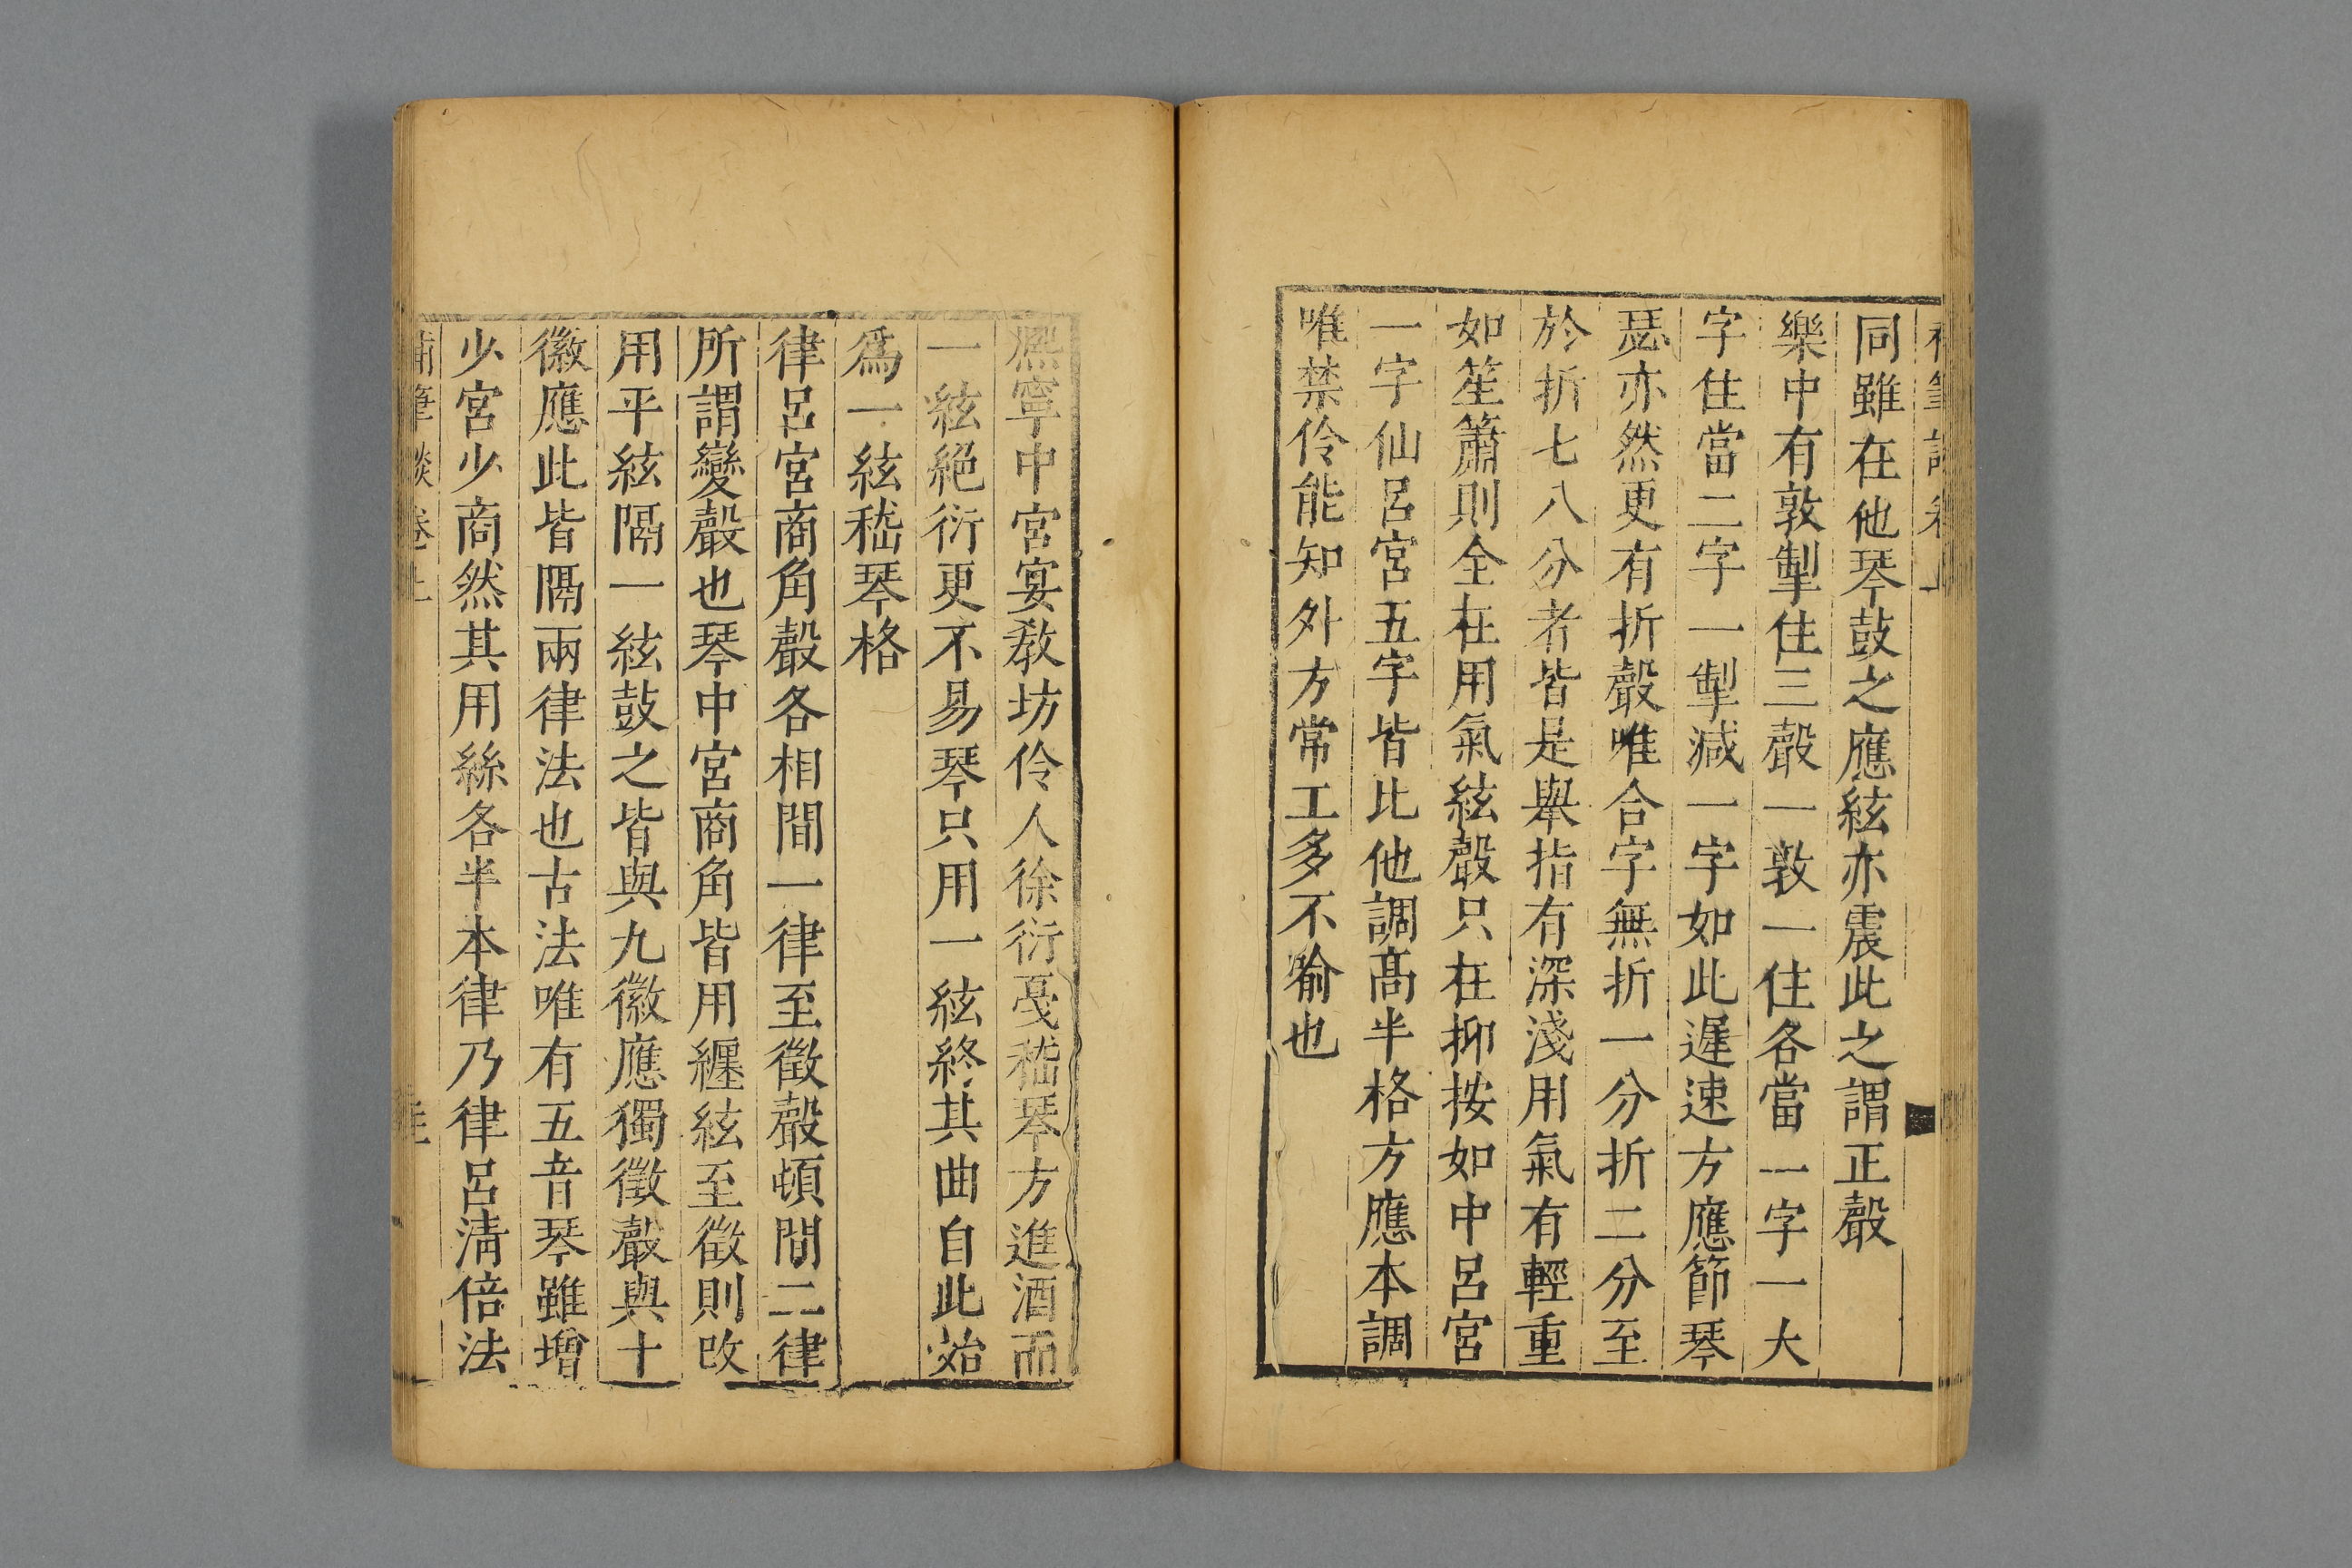 補筆談卷上
同雖在他琴鼓之應絃亦震此之謂正聲
樂中有敦掣住三聲一敦一住各當一字一大
字住當二字一掣減一字如此遲速方應節琴
瑟亦然更有折聲唯合字無折一分折二分至
於折七八分者皆是舉指有深淺用氣有輕重
如笙簫則全在用氣絃聲只在抑按如中呂宮
一字仙呂宮五字皆比他調高半格方應本調
唯禁伶能知外方常工多不喻也
熈寧中宮宴敎坊伶人徐衍戞嵇琴方進酒而
一絃絕衍更不易琴只用一絃終其曲自此始
爲一絃嵇琴格
律呂宮商角聲各相間一律至徵聲頓間二律
所謂變聲也琴中宮商角皆用纏絃至徵則改
用平絃隔一絃鼓之皆與九徽應獨徵聲與十
徽應此皆隔兩律法也古法唯有五音琴雖增
少宮少商然其用絲各半本律乃律呂淸倍法
補筆談卷上